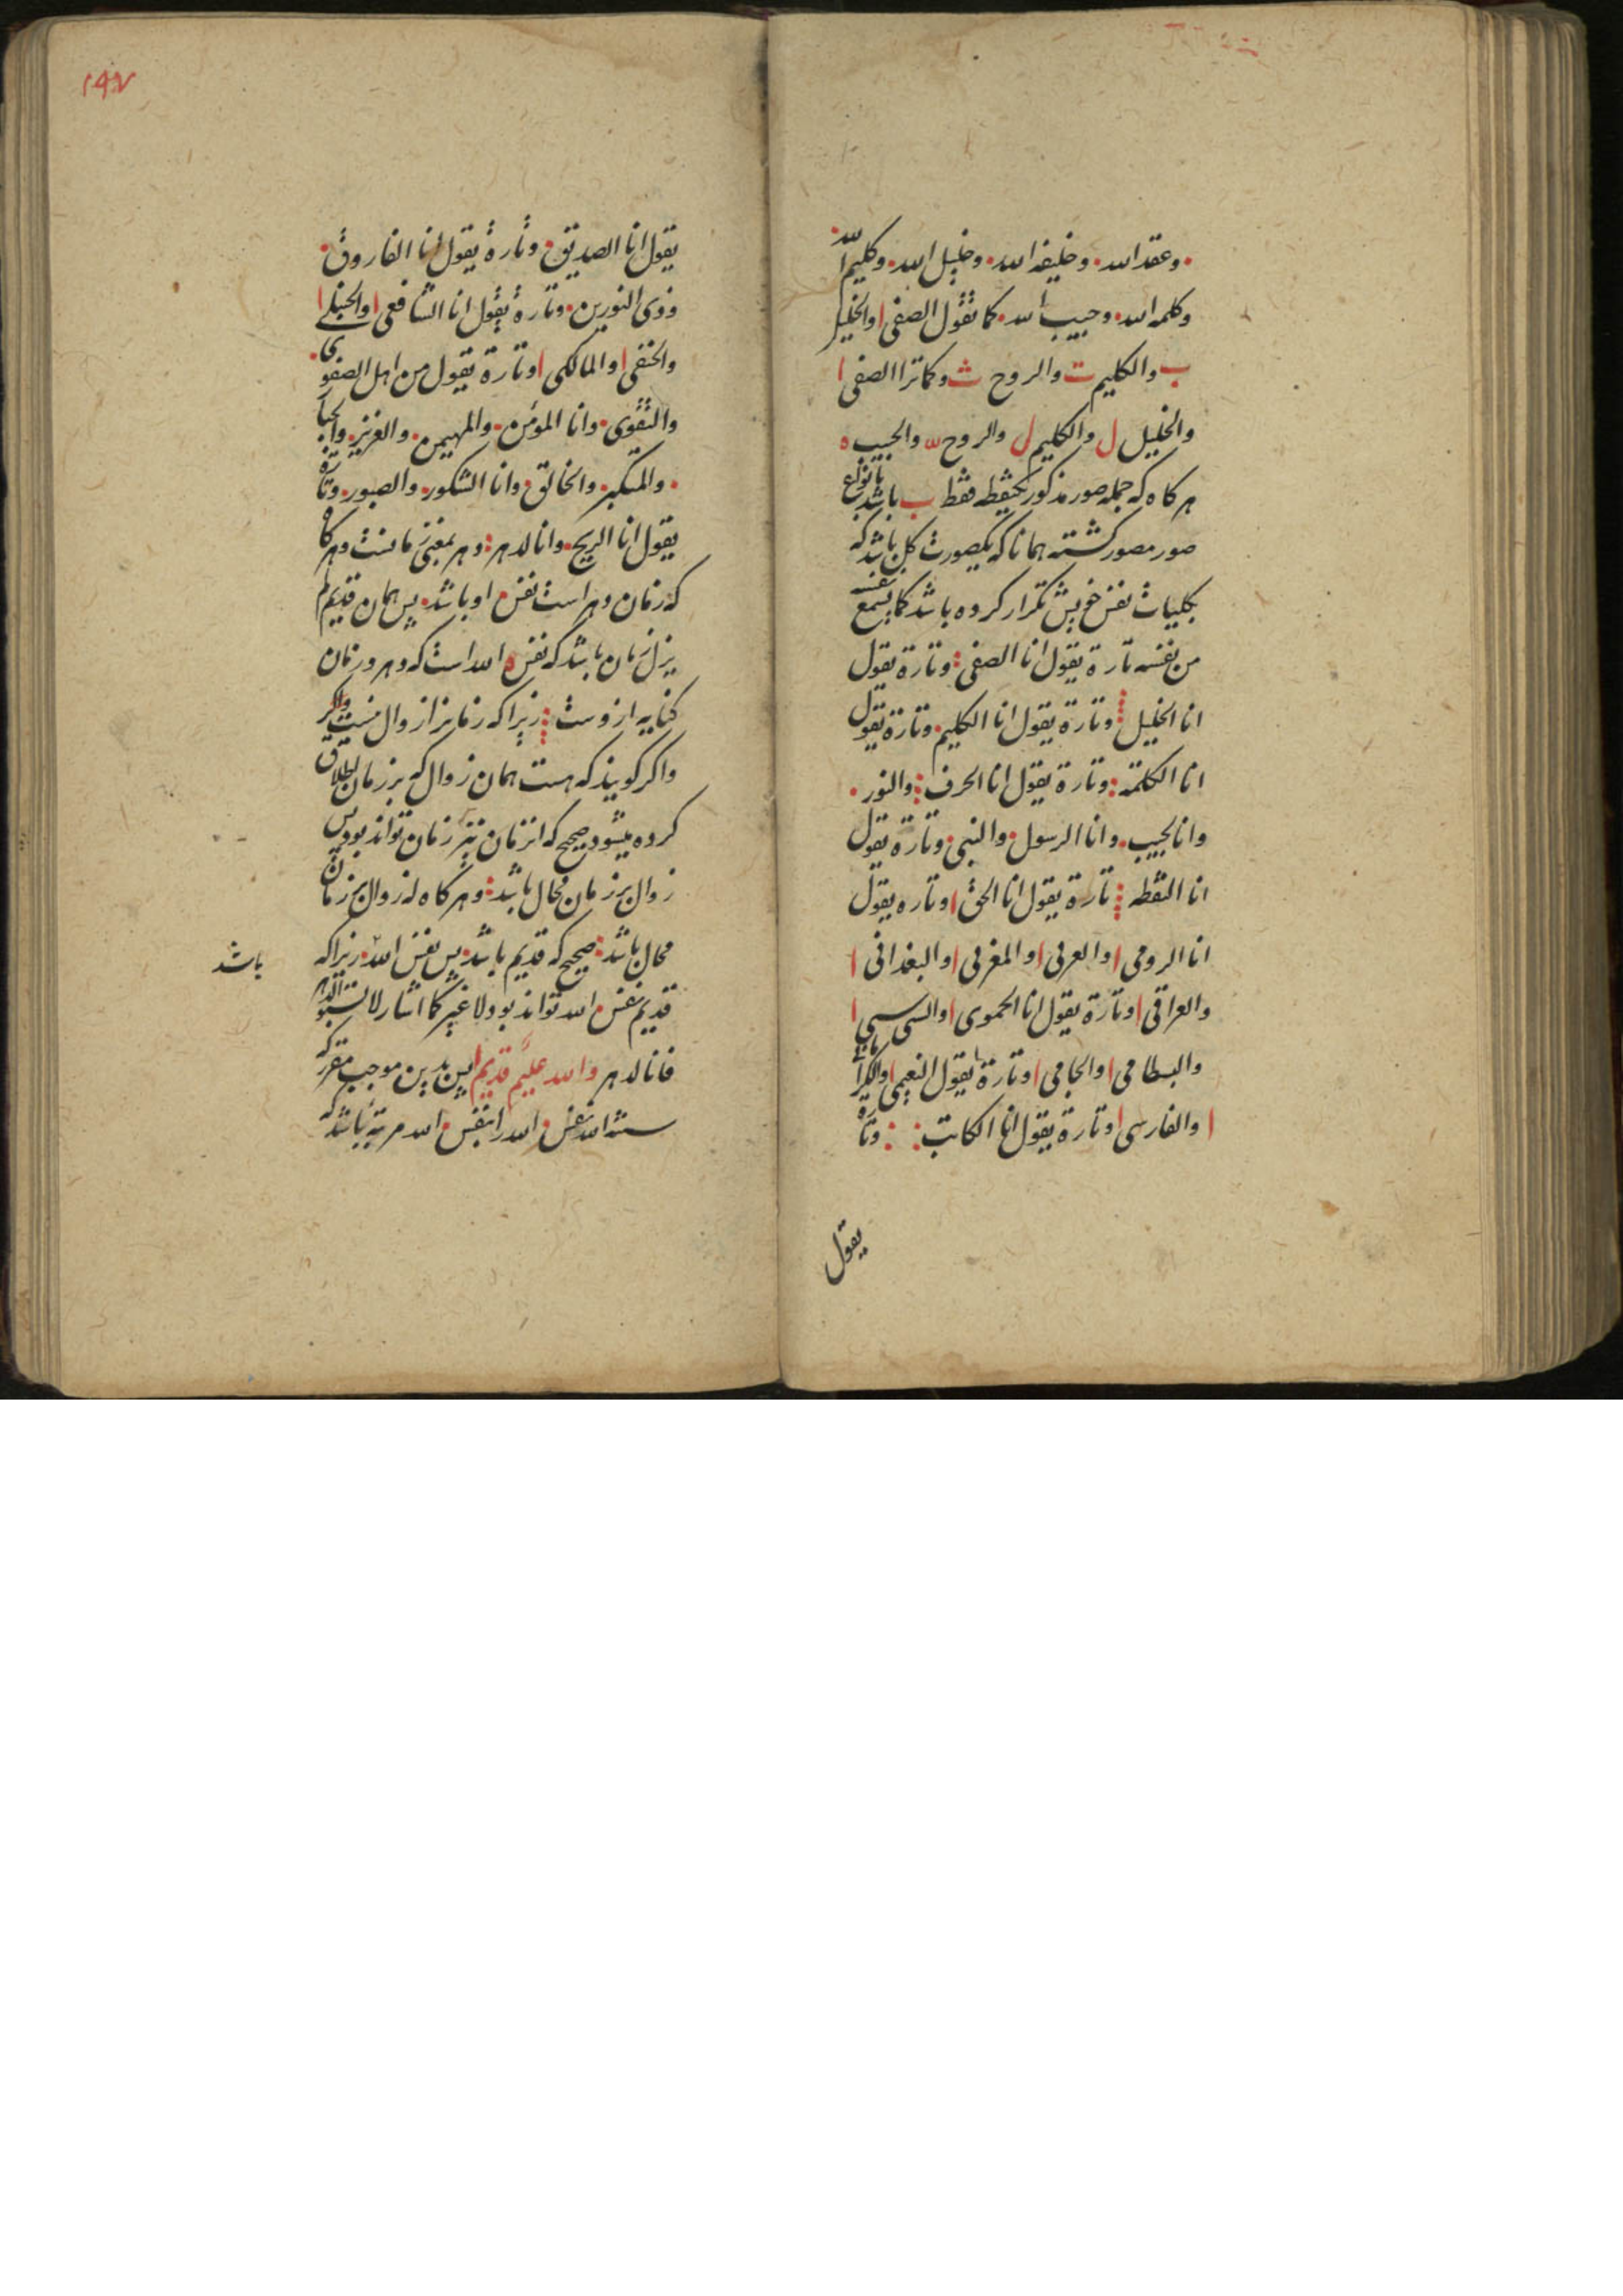 وعقد الله وخليفة الله وخليل الله وكليم الله
وكلمه الله وحبيب الله كما تقول الصفى ا والخليل
ب والكليم ت والروح ث وكما ترا الصفى ا
والخليل ل والكليم ل والروح والحبيب ه
هر كاه كه جمله صور مذكور بحيطه فقط ب باشد بانواع
صور مصور كشته همانا كه بكصورت كل باشد كه
بكليات نفس خويش تكرار كرده باشد كما يسمع نفسه
من نفسه تارة يقول انا الصفى وتارة يقول
انا الخليل وتارة يقول انا الكليم وتارة يقول
انا الكلمة وتارة يقول انا الحرف والنور
وانا لحبيب وانا الرسول والنبى وتارة يقول
انا النقطه تارة يقول انا الحق ا وتاره يقول
انا الرومى ا والعربى ا والمغربى ا والبغدانى ا
والعراقى ا وتارة يقول انا الحموى ا والسى سى ا
والبسطامى ا والجامى ا وتارة يقول النعيمى ا
ا والفارسى ا وتارة يقول انا الكاتب وتارة
يقول
١٤٧
يقول انا الصديق وتارة يقول انا الفاروق
وذى النورين وتارة يقول انا الشافعى ا والحنبلى ا
والحنفى ا والمالكى ا وتارة يقول من اهل الصفوى
والتقوى وانا المؤمن والمهيمن والعزيز والجبار
والمتكبر والخالق وانا الشكور والصبور وتارة
يقول انا الريح وانا لدهر ودهر بمعنى زمانست وهر كاه
كه زمان ودهر است نفس او باشد پس همان قديم لم
يزل زمان باشد كه نفس ه الله است كه دهر وزمان
كنايه ازوست زيرا كه زمانرا زوال نيست واكر
واكر كويند كه هست همان زوال كه بر زمان اطلاق
كرده ميشود صحيح كه انزمان نيز زمان تواند بود پس
زوال بر زمان محال باشد وهر كاه كه زوال بر زمان
محال باشد صحيح كه قديم باشد پس نفس الله زيرا كه
باشد
قديم نفس الله تواند بود ولا غير كما اشار لا تسبوا الدهر
فانا لدهر والله عليم قديم ا پس بدين موجب مقرر كه
الله نفس الله را بنفس الله مرتبه باشد كه